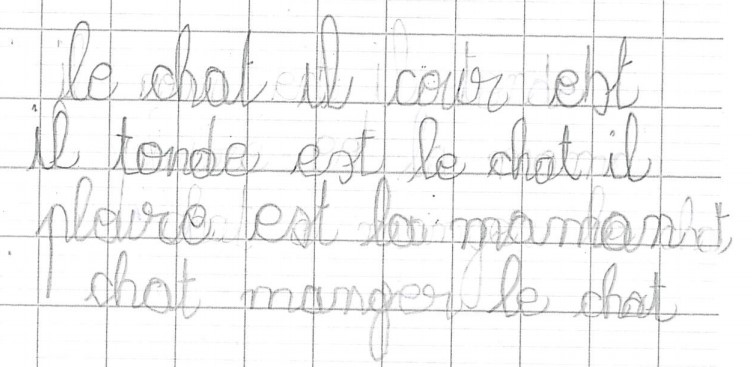 le chat il cour est
il tonde est le chat il
ploure est la mamant
chat manger le chat